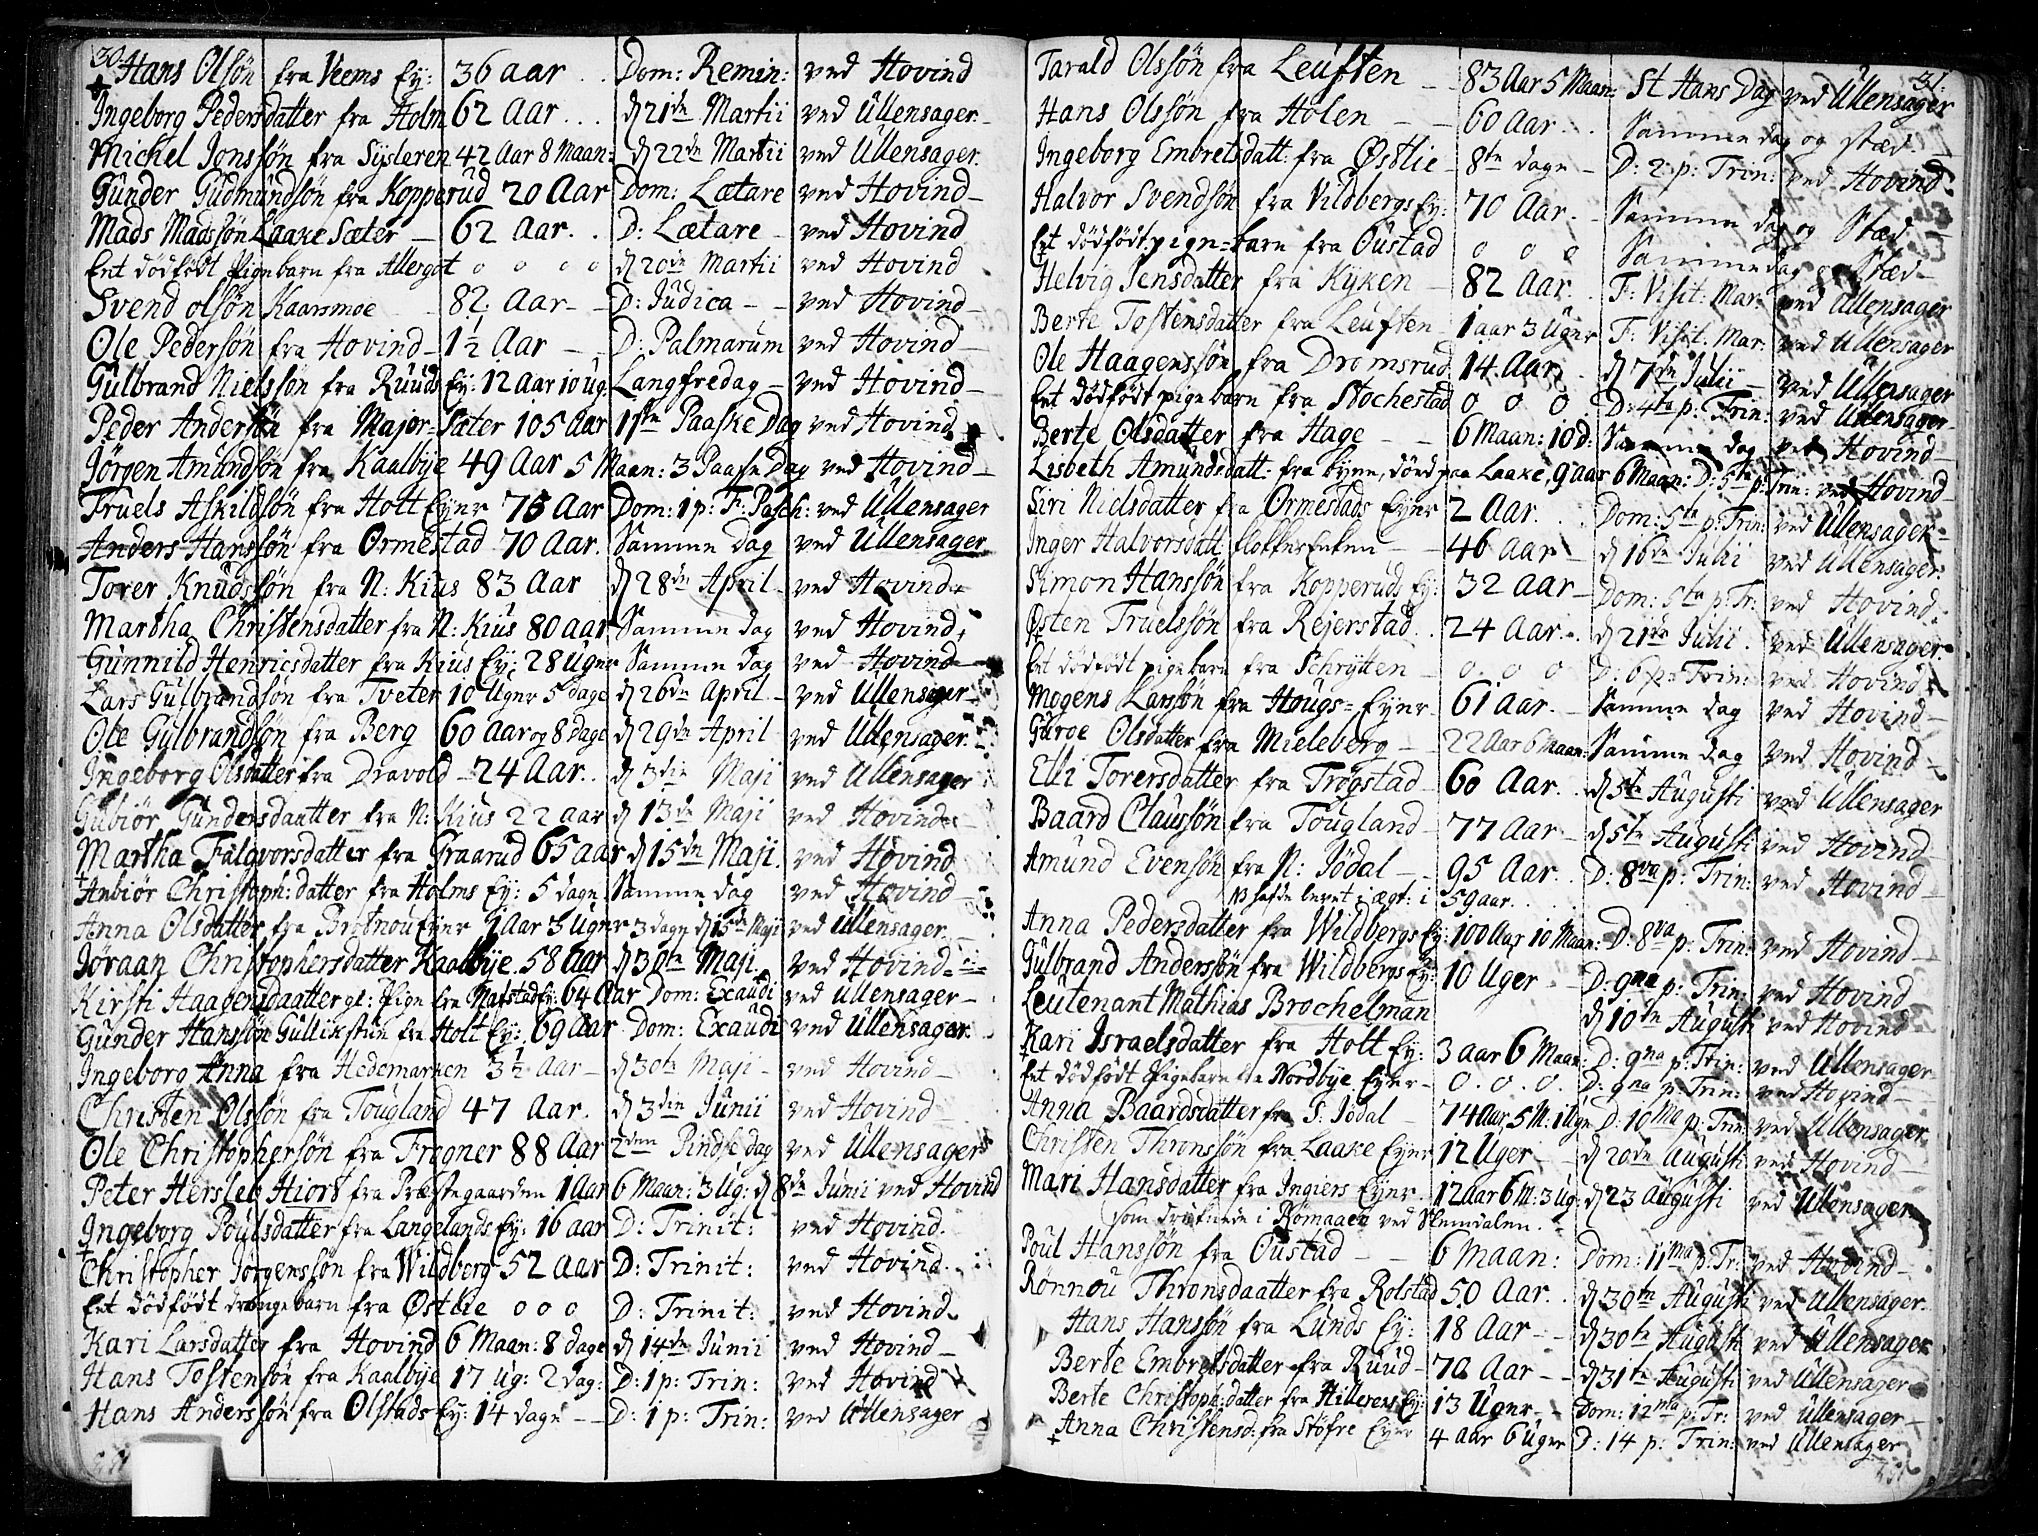 30.
Hans Olsön fra Veems Ey: 36 aar . . Dom: Remin: ved Hovind
Ingeborg Pedersdatter fra Holm 62 Aar . . . d 21de Martii ved Ullensager
Michel Jonssön fra Sysleren 42 Aar 8 Maan: d 22de Martii ved Ullensager
Gunder Gudmundsön fra Kopperud 20 Aar Dom: Lætare ved Hovind
Mads Madssön Laake Sæter 62 Aar. . D: Lætare ved Hovind
Eet dödfödt Pigebarn fra Allergot o o o o d 20de Martii ved Hovind
Svend olsön Kaarsmoe 82 Aar D: Judica ved Hovind
Ole Pedersön fra Hovind 1½ Aar D: Palmarum ved Hovind
Gulbrand Nielssön fra Ruuds Ey: 12 Aar 10 ug: Langfredag ved Hovind
Peder Andersön fra Major-Sæter 105 Aar 1ste Paaske Dag ved Hovind
Jörgen Amundsön fra Kaalbye 49 Aar 5 Maan: 3 Paaske Dag ved Hovind
Truels Askildsön fra Holt Eyer 75 Aar Dom: 1 p: F: Pasch: ved Ullensager
Anders Hanssön fra Ormestad 70 Aar. Samme dag ved Ullensager
Torer Knudssön fra N: Kius 83 Aar d 28de April ved Hovind
Martha Christensdatter fra N: Kius 80 aar Samme dag ved Hovind
Gunnild Henricsdatter fra Kius Ey: 28 Uger Samme dag ved Hovind
Lars Gulbrandsön fra Tveter 10 Uger 5 dage d 26de April ved Ullensager
Ole Gulbrandsön fra Berg 60 Aar og 8 dage d 29de April ved Ullensager
Ingeborg Olsdatter fra Dravold 24 Aar. d 3die Maji ved Ullensager
Gubiör Gundersdaatter fra N: Kius 22 aar d 13de Maji ved Hovind
Martha Falqvorsdatter fra Graarud 65 aar d 15de Maji ved Hovind
Anbiör Christoph: datter fra Holms Ey: 5 dage Samme dag ved Hovind
Anna Olsdatter fra Brotnou Eyer 1 Aar 3 Uger 3 dage d 15de Maji ved Ullensager
Jöraan Christophersdatter Kaalbye 58 Aar d 30te Maji ved Hovind
Kirsti Haagensdaatter gl: Pige fra Mafstad Ey: 64 Aar Dom: Exaudi ved Ullensager
Gunder Hanssön Gullikstue fra Holt Ey: 69 Aar Dom: Exaudi ved Ullensager
Ingeborg Anna fra Hedemarken 3½ Aar d 30te Maji ved Hovind
Christen Olssön fra Tougland 47 Aar. d 3die Junii ved Hovind
Ole Christophersön fra Frogner 88 Aar 2den Pindse dag ved Ullensager
Peter Hersleb Hiort fra Præstegaarden 1 Aar 6 Maan: 3 Ug: d 8de Junii ved Hovind
Ingeborg Poulsdatter fra Langelands Ey: 16 aar D: Trinit: ved Hovind
Christopher Jörgenssön fra Wildberg 52 Aar D: Trinit: ved Hovind
Eet dödfödt drengebarn fra Östlie o o o D: Trinit: ved Hovind
Kari Larsdatter fra Hovind 6 Maan: 8 dage d 14de Junii ved Hovind
Hans Tostensön fra Kaalbye 17 Ug: 2 dag: D: 1 p: Trin: ved Hovind
Hans Anderssön fra Olstads Ey: 14 dage D: 1 p: Trin: ved Ullensager
31.
Tarald Olssön fra Leuften 83 Aar 5 Maan: St Hans Dag ved Ullensager
Hans Olssön fra Holen 60 Aar Samme dag og stæd
Ingeborg Embretsdatt: fra Östlie 8te dage D: 2 p: Trin: ved Hovind
Halvor Svendsön fra Vildbergs Ey: 70 Aar. Samme dag og Stæd
Eet dödfödt pige=barn fra Oustad o o o Samme dag og Stæd
Helvig Jensdatter fra Kyken 82 Aar. F: Visit: Mar: ved Ullensager
Berte Tostensdatter fra Leuften 1 aar 3 Uger F: Visit. Mar. ved Ullensager
Ole Haagenssön fra Dromsrud 14 Aar d 7de Julii ved Ullensager
Eet dödfödt pigebarn fra Stochestad o o o D: 4ta p: Trin: ved Ullensager
Berte Olsdatter fra Hage 6 Maan: 10 d: Samme dag ved Hovind
Lisbeth Amundsdatt: fra byen, döed paa Laake, 9 aar 6 Maan: D: 5ta p: Trin: ved Hovind
Siri Nielsdatter fra Ormestads Eyer 2 Aar. Dom: 5ta p: Trin: ved Ullensager
Inger Halvorsdatt klokker Enken 46 Aar d 16de Julii ved Ullensager
Simon Hanssön fra Kopperuds Ey: 32 Aar Dom: 5ta p: Tr: ved Hovind
Östen Truelssön fra Rejerstad 24 Aar d 21de Julii ved Ullensager
Eet dödfödt pigebarn fra Schrytten o o o D: 6 p: Trin: ved Hovind
Mogens Larssön fra Hougs=Eyer 61 Aar. Samme dag ved Hovind
Guroe Olsdatter fra Mieleberg 22 Aar 6 Maan: Samme dag ved Hovind
Elli Torersdatter fra Trögstad 60 Aar. d 5te Augusti ved Ullensager
Baard Claussön fra Tougland 77 Aar d 5te Augusti ved Hovind
Amund Evensön fra N: Jödal 95 Aar. D: 8va p: Trin: ved Hovind
NB hafde levet i ægt: i 59 aar.
Anna Pedersdatter fra Wildbergs Ey: 100 Aar 10 Maan: D: 8va p: Trin: ved Hovind
Gulbrand Anderssön fra Wildbergs Ey: 10 Uger D: 9na p: Trin: ved Hovind
Leutenant Mathias Brochelman d 10de Augusti ved Hovind
Kari Israelsdatter fra Holt Ey: 3 aar 6 Maan: D: 9na p: Trin: ved Ullensager
Eet dödfödt Pigebarn fra Nordbye Eyer o. o. o. D: 9na p: Trin: ved Hovind
Anna Baardsdatter fra S: Jödal 74 Aar 5 M: 1 Uge D: 10ma p: Trin: ved Ullensager
Christen Thronssön fra Laake Eyer 12 Uger d 20de Augusti ved Hovind
Mari Hansdatter fra Ingiers Eyer. 12 aar 6 M: 3 Ug: d 23 Augusti ved Ullensager
som druknede i Romaaen ved Slemdalen.
Poul Hanssön fra Oustad 6 Maan: Dom: 11ma p: Tr: ved Hovind
Rönnou Thronsdaatter fra Rolstad 50 Aar. d 30te Augusti ved Ullensager
Hans Hanssön fra Lunds Ey: 18 Aar d 30te Augusti ved Ullensager
Berte Embretsdatter fra Ruud 70 Aar d 31te Augusti ved Ullensager
Berte Christophsdatter fra Hillerens Ey: 13 Uger Dom: 12ma p: Tr: ved Ullensager
Anna Christensd: fra Stöfre Eyer 4 Aar 6 Uger D: 14 p: Trin: ved Ullensager